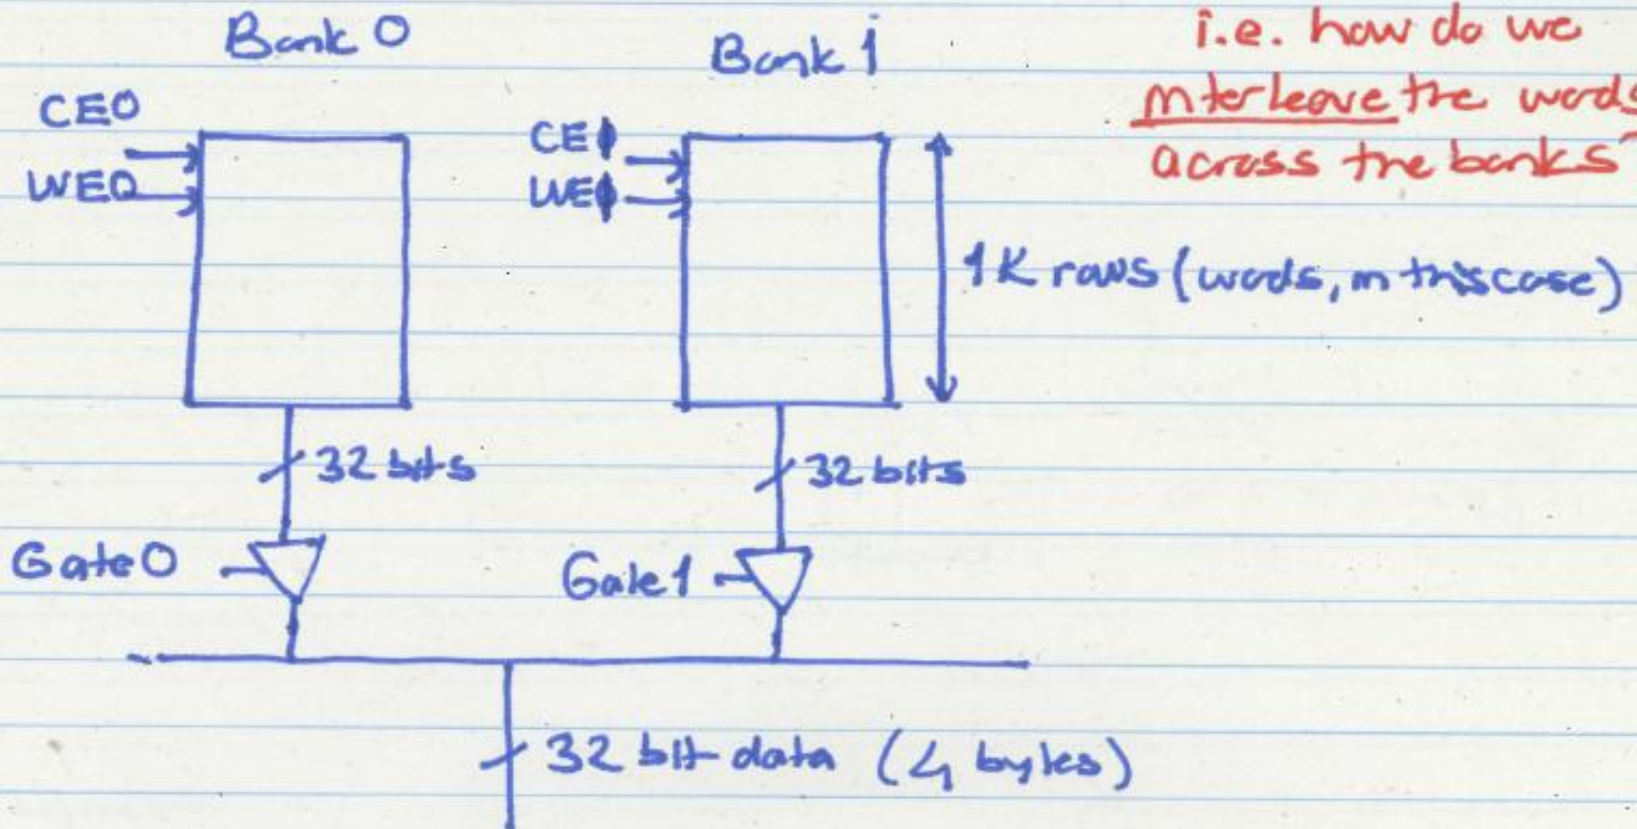 Bank 0
Bank 1
i.e. how do we
interleave the words
across the banks?
CE0
WE0
CE1
WE1
1K rows (words, in this case)
32 bits
32 bits
Gate0
Gate1
32 bit data (4 bytes)